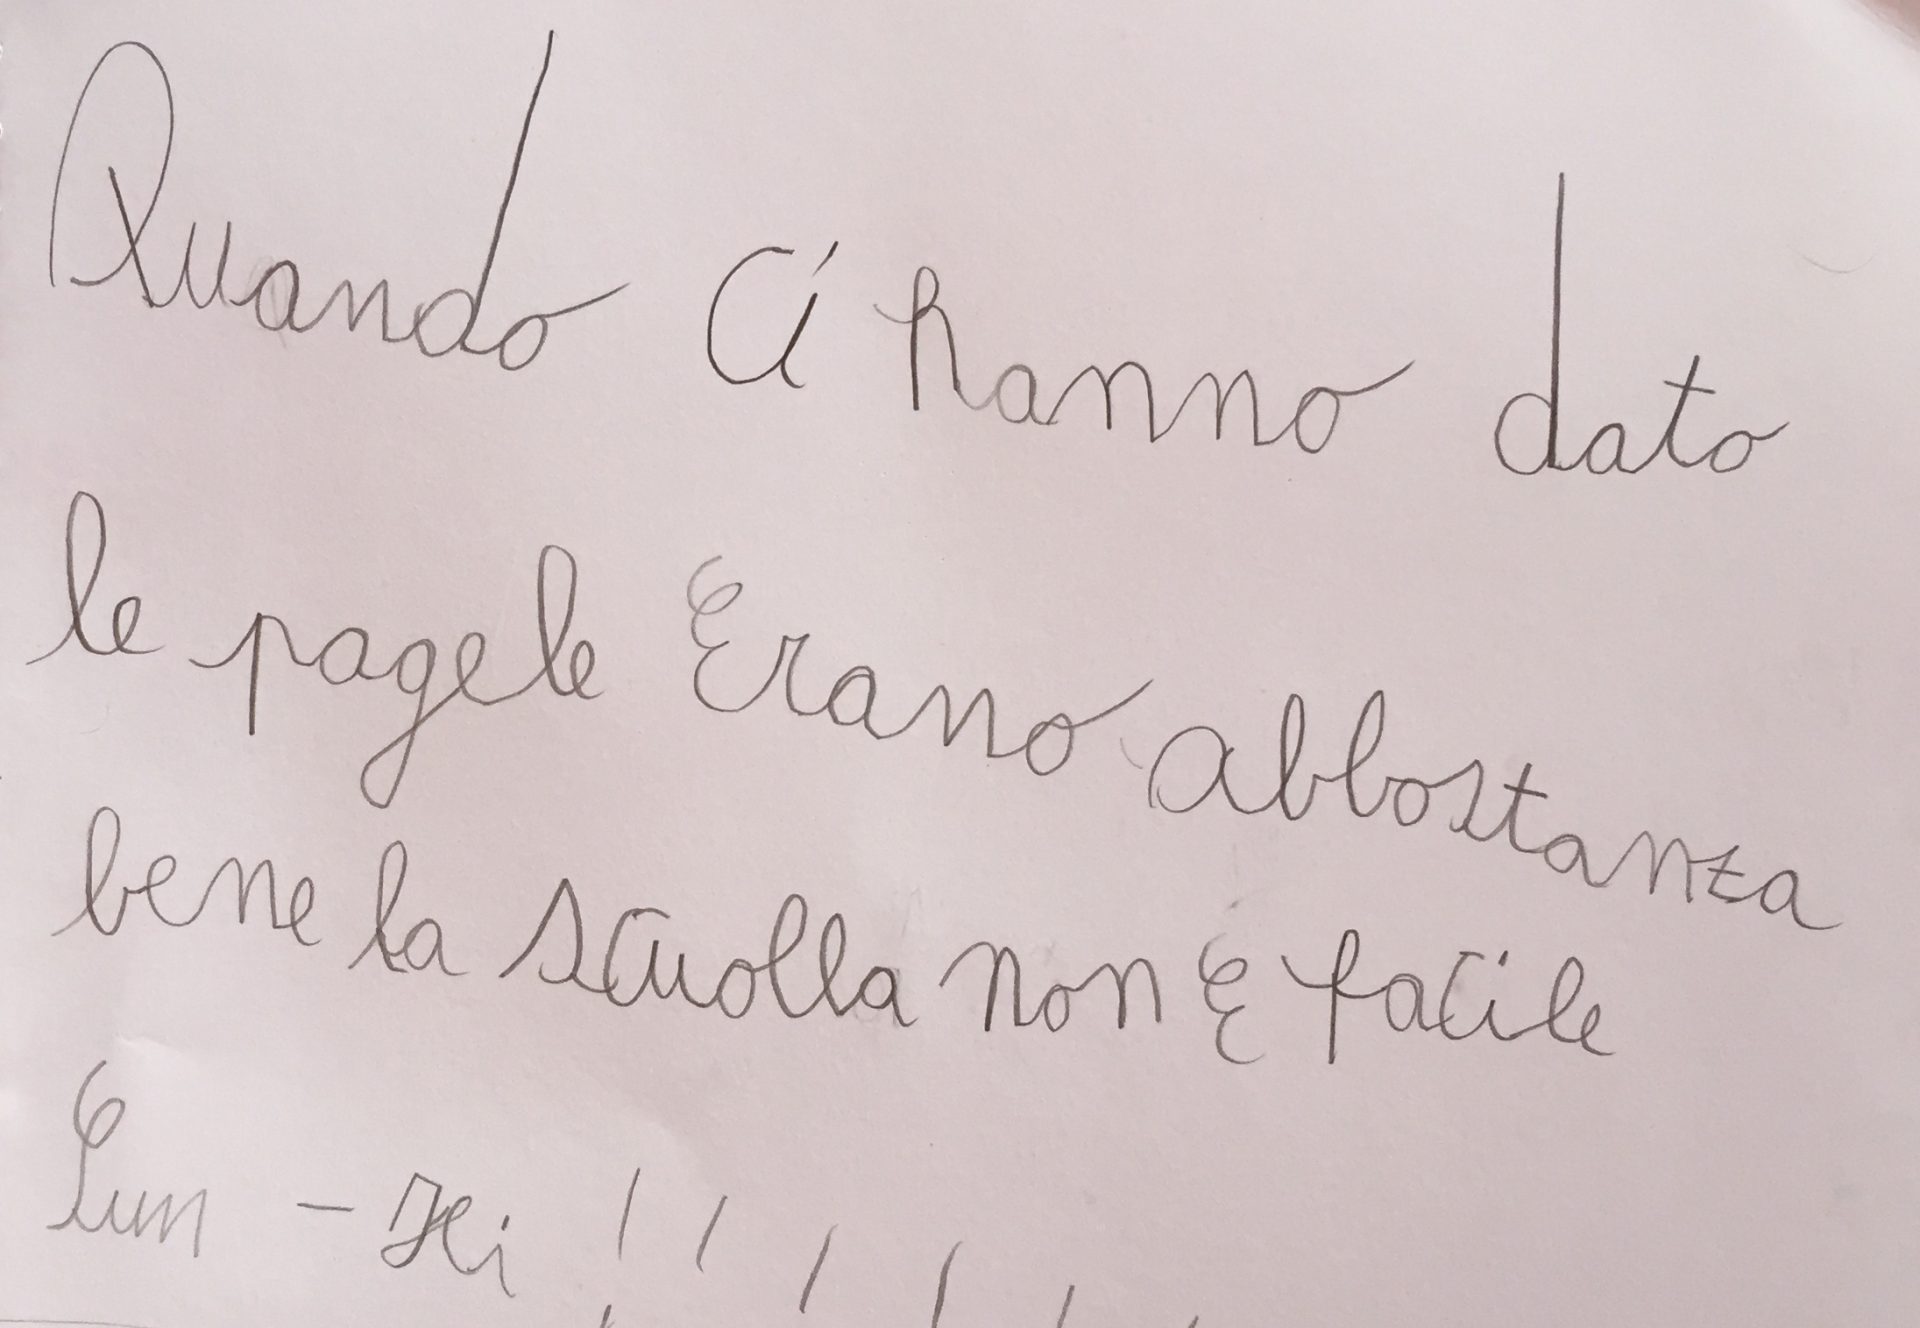 Quando ci hanno dato
le pagele Erano abbostanza
bene la scuolla non E facile
Sun - Hi !!!!!